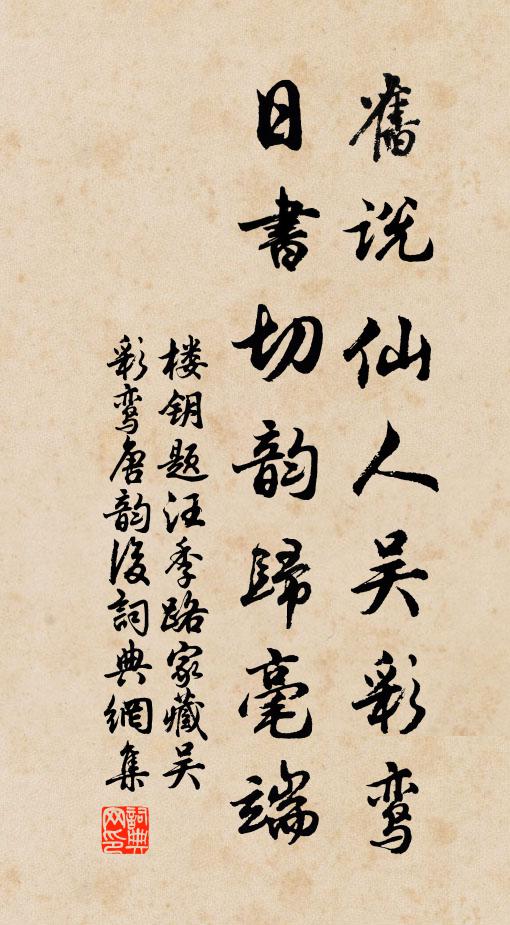 舊说仙人吴彩鸾
日書切韵歸毫端
楼钥题汪季路家藏吴
彩鸾唐韵後詞典網集
詞典网印